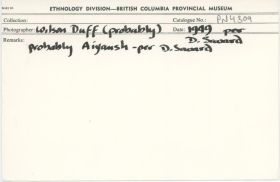 ETHNOLOGY DIVISION—BRITISH COLUMBIA PROVINCIAL MUSEUM
Collection: Catalogue No.: PN4309
Photographer: Wilson Duff (probably) Date: 1949 per D. Savard
Remarks:
probably Aiyansh - per D. Savard